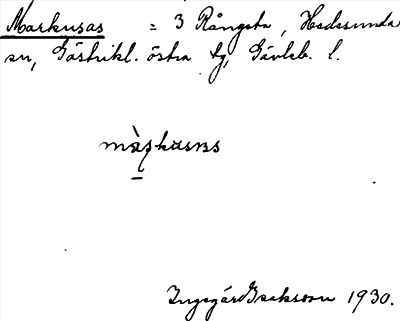 Markusas = 3 Rångsta, Hedesunda
sn, Gästrikl. östra tg, Gävleb. l.
Ingegär Isaksson 1930.